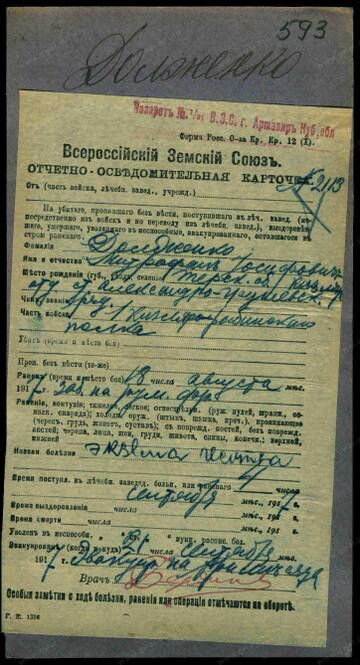 593
Долженко
Лазаретъ № 1/91 В.З.С. г. Армавиръ Куб. обл
Форма Росс. О-ва Кр. Кр. 12 (I).
Всероссійскій Земскій Союзъ.
ОТЧЕТНО-ОСВѢДОМИТЕЛЬНАЯ КАРТОЧКА
№ 2113
Отъ (часть войска, лѣчебн. завед., учрежд.)
На убитаго, пропавшаго безъ вѣсти, поступившаго въ лѣч. завед. (непосредственно
изъ войскъ и по переводу изъ лѣчебн. завед.), выздоровѣвшаго,
умершаго, уволеннаго въ неспособные, эвакуированнаго, оставшагося въ
строю раненаго.
Фамилія Долженко
Имя и отчество Митрофанъ Іосифовичъ
Мѣсто рожденія (губ., уѣзд, селеніе) Терск. об.
отд. ст. Александро-
Чинъ, званіе ряд.
Часть войскъ 1 Кизляро-Гребенскаго
полка
Убитъ (время и мѣсто боя)
Проп. безъ вѣсти (то-же)
Раненъ (время и мѣсто боя) 18 числа августа мѣс.
1917 г. заб. на рум. фр.
Раненіе, контузія: тяжелое, легкое; огнестрѣльн. (руж. пулей, шрапн., осколк.
снаряда); холодн. оруж. (штыкъ, шашка, проч.), проникающее
(черепъ, грудь, животъ, суставъ); съ поврежд. костей, безъ поврежд.
костей; черепа, лица, шеи, груди, живота, спины, конечн.: верхней,
нижней
Названіе болѣзни
Время поступл. въ лѣчебн. завед. больн. или раненаго числа
сентября мѣс., 1917 г.
Время выздоровленія числа мѣс., 191 г.
Время смерти числа мѣс., 191 г.
Уволенъ въ неспособн. по пункт. распис. бол.
Эвакуированъ (когда и куда) 21 числа сентября мѣс.
1917 г. Эвакуир. на
Врачъ
Особыя замѣтки о ходѣ болѣзни, раненія или операціи отмѣчаются на оборотѣ.
Г. К. 1356